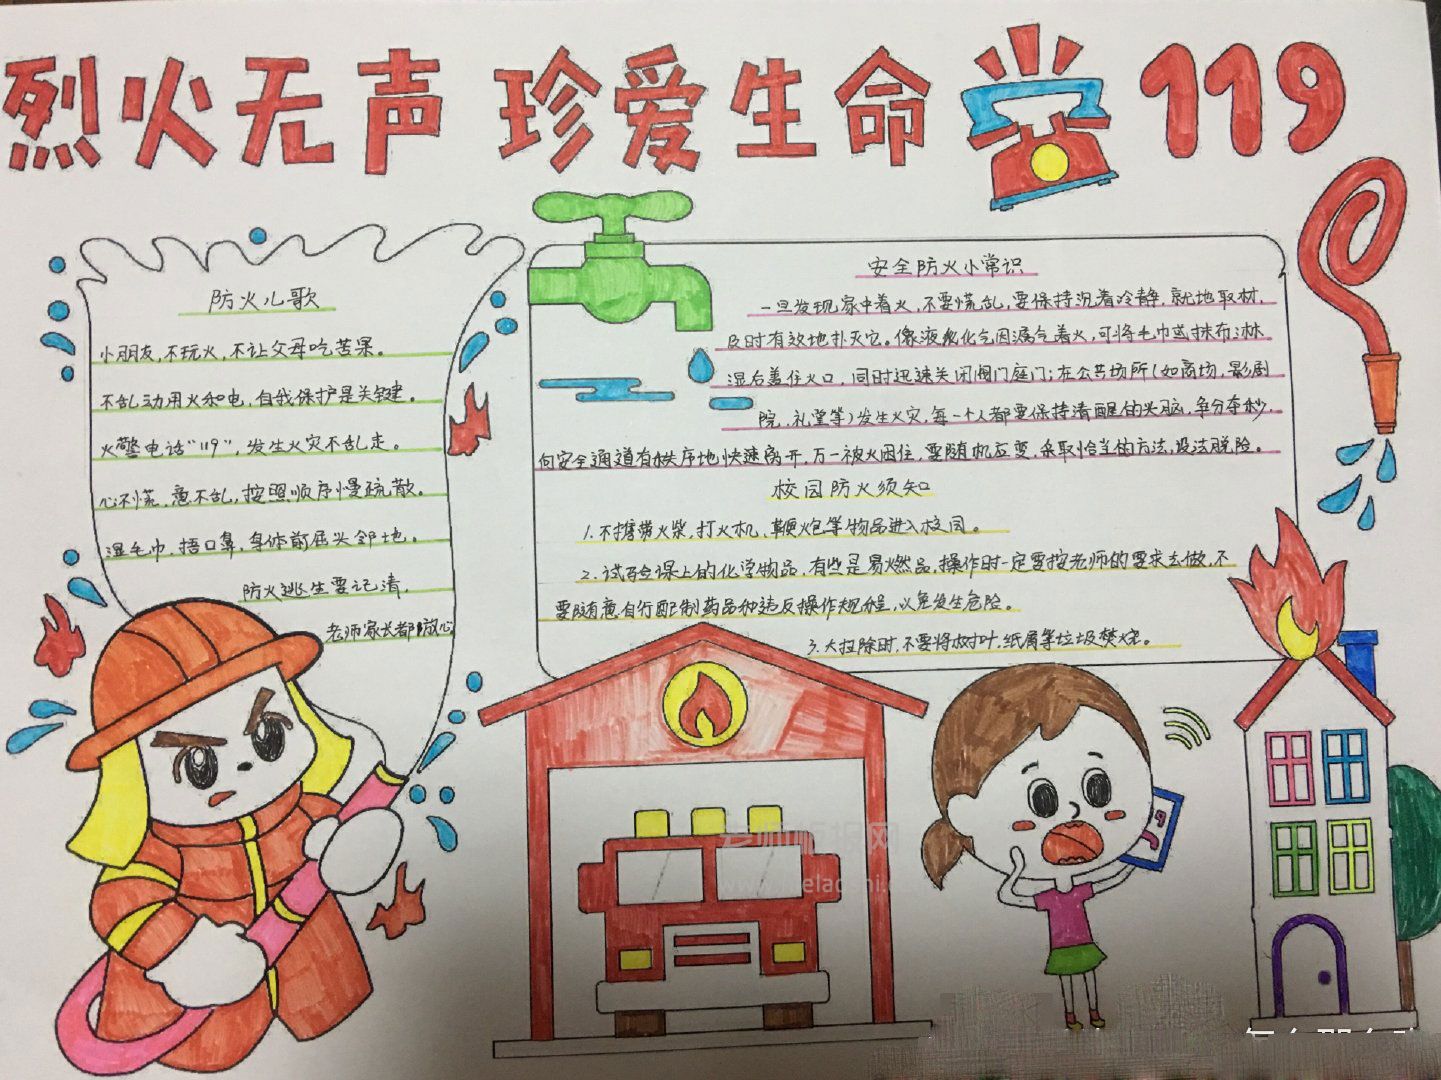 烈火无声 珍爱生命 119
防火儿歌
小朋友,不玩火,不让父母吃苦果。
不乱动用火和电,自我保护是关键。
火警电话“119”,发生火灾不乱走。
心不慌,意不乱,按照顺序慢疏散。
湿毛巾,捂口鼻,身体前屈头邻地。
防火逃生要记清,
老师家长都放心
安全防火小常识
一旦发现家中着火,不要慌乱,要保持沉着冷静,就地取材,
及时有效地扑灭它。像液化气因漏气着火,可将毛巾或抹布淋
湿后盖住火口,同时迅速关闭阀门庭门;在公共场所(如商场,影剧
院,礼堂等)发生火灾,每一个人都要保持清醒的头脑,争分夺秒,
向安全通道有秩序地快速离开,万一被火困住,要随机应变,采取恰当的方法,设法脱险。
校园防火须知
1.不携带火柴,打火机、鞭炮等物品进入校园。
2.试验课上的化学物品,有些是易燃品,操作时一定要按老师的要求去做,不
要随意自行配制药品和违反操作规程,以免发生危险。
3.大扫除时,不要将树叶,纸屑等垃圾焚烧。